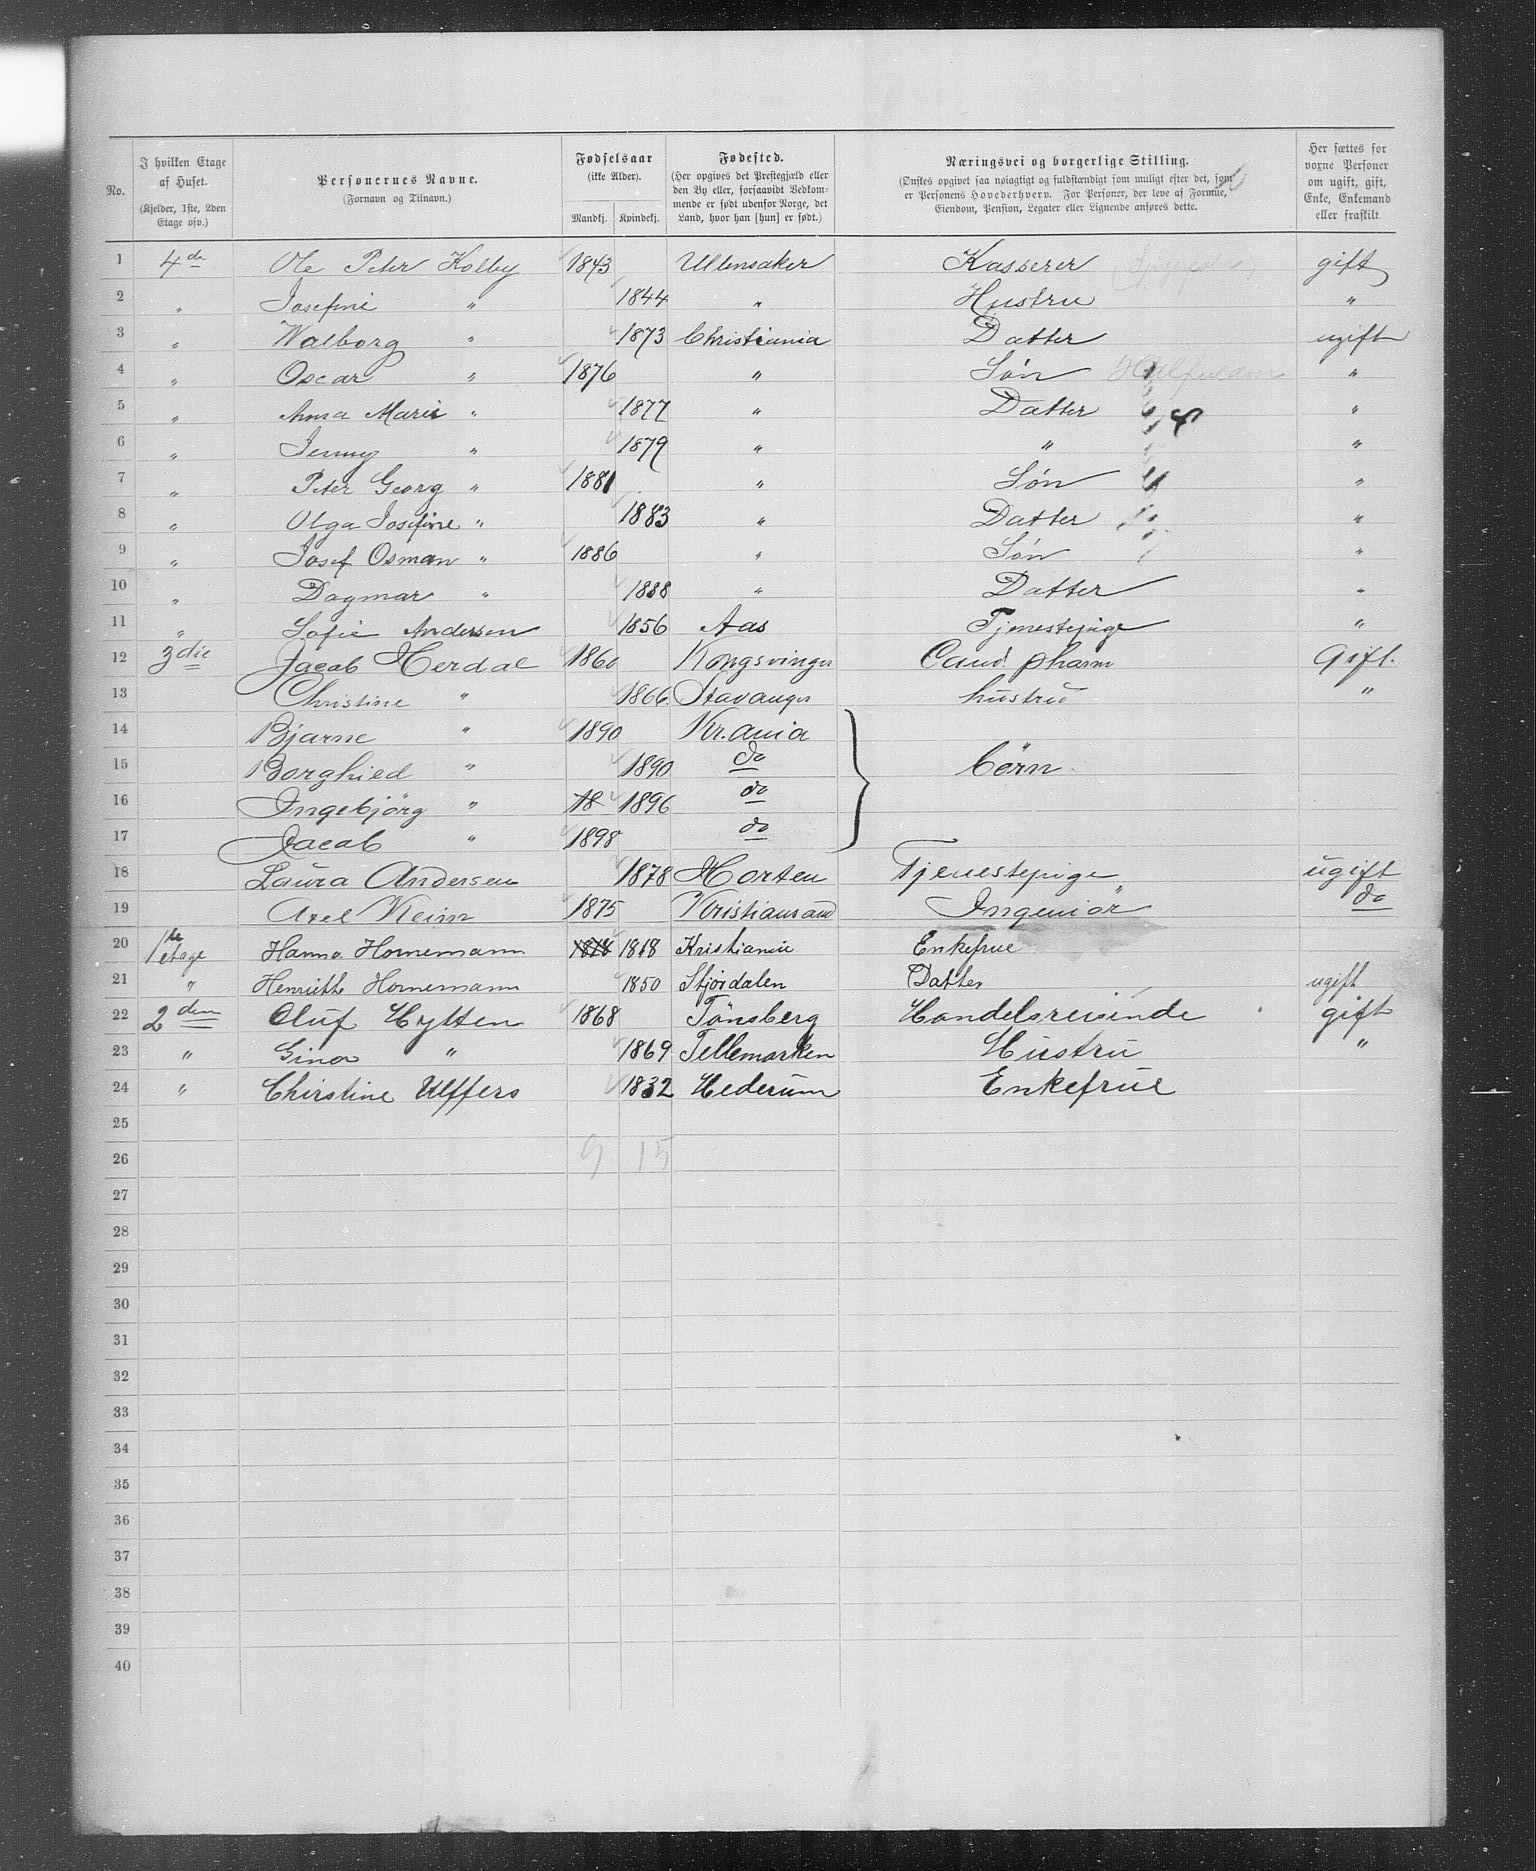 No. | I hvilken Etage af Huset. (Kjelder, 1ste, 2den Etage osv.) | Personernes Navne. (Fornavn og Tilnavn.) | Fødselsaar (ikke Alder). Mandkj. | Kvindekj. | Fødested. (Her opgives det Prestegjæld eller den By eller, forsaavidt Vedkommende er født udenfor Norge, det Land, hvor han [hun] er født.) | Næringsvei og borgerlige Stilling. (Ønskes opgivet saa nøiagtigt og fuldstændigt som muligt efter det, som er Personens Hovederhverv. For Personer, der leve af Formue, Eiendom, Pension, Legater eller Lignende anføres dette. | Her sættes for voxne Personer om ugift, gift, Enke, Enkemand eller fraskilt.
1 | 4de | Ole Peter Kolby | 1843 | | Ullensaker | Kasserer | gift
2 | " | Josefine " | | 1844 | " | Hustru | "
3 | " | Walborg " | | 1873 | Christiania | Datter | ugift
4 | " | Oscar " | 1876 | | " | Søn | "
5 | " | Anna Marie " | | 1877 | " | Datter | "
6 | " | Jenny " | | 1879 | " | " | "
7 | " | Peter Georg " | 1881 | | " | Søn | "
8 | " | Olga Josefine " | | 1883 | " | Datter | "
9 | " | Josef Osman " | 1886 | | " | Søn | "
10 | " | Dagmar " | | 1888 | " | Datter | "
11 | " | Sofie Andersen | | 1856 | Aas | Tjenestepige | "
12 | 3die | Jacob Herdal | 1860 | | Kongsvinger | Cand. pharm | Gift.
13 | | Christine " | | 1866 | Stavanger | hustru | "
14 | | Bjarne " | 1890 | | Kr.ania
15 | | Borghied " | | 1890 | do | börn
16 | | Ingebjörg " | 18 | 1896 | do
17 | | Jacob " | 1898 | | do
18 | | Laura Andersen | | 1878 | Horten | Tjenestepige | ugift
19 | | Axel Keim | 1875 | | Kristiansand | Ingeniör | do
20 | 1ste etage | Hanna Hornemann | 1818 | 1818 | Kristiania | Enkefrue
21 | " | Henriette Hornemann | | 1850 | Stjørdalen | Datter | ugift
22 | 2den | Oluf Hytten | 1868 | | Tönsberg | Handelsreisende | gift
23 | " | Gina " | | 1869 | Tellemarken | Hustru | "
24 | " | Chirstine Ulffers | | 1832 | Hederum | Enkefrue
25
26 | | | 9 | 15
27
28
29
30
31
32
33
34
35
36
37
38
39
40